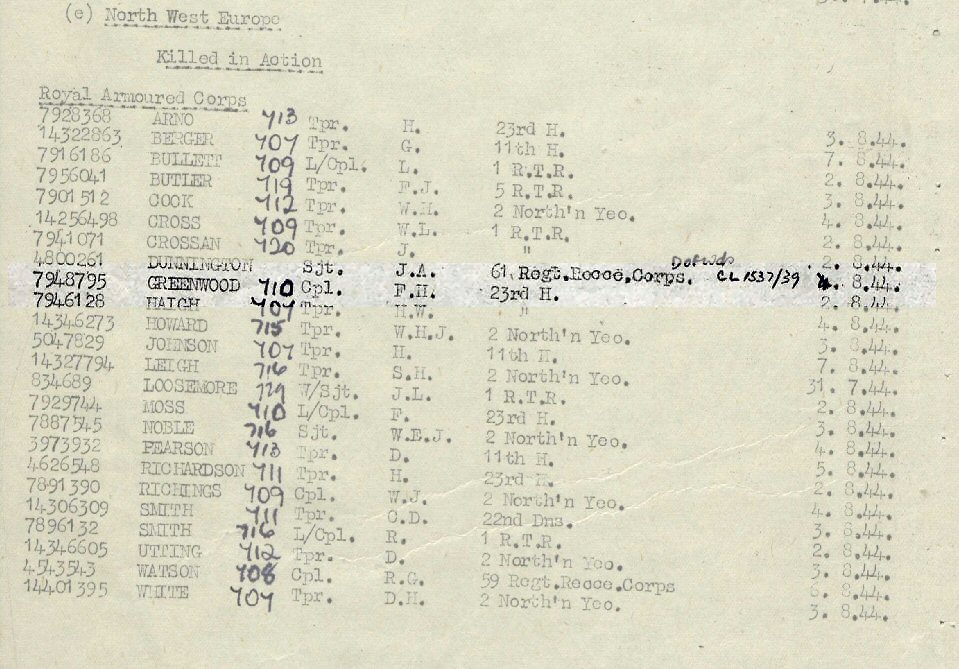 (e) North West Europe
Killed in Action
Royal Armoured Corps
7928368 ARNO 713 Tpr. H. 23rd H. 3. 8.44.
14322863 BERGER 707 Tpr. G. 11th H. 7. 8.44.
7916186 BULLETT 709 L/Cpl. L. 1 R.T.R. 2. 8.44.
7956041 BUTLER 719 Tpr. F.J. 5 R.T.R. 3. 8.44.
7901512 COCK 712 Tpr. W.H. 2 North'n Yeo. 4. 8.44.
14256498 CROSS 709 Tpr. W.L. 1 R.T.R. 2. 8.44.
7941071 CROSSAN 720 Tpr. J. " 2. 8.44.
4800261 DUNNINGTON Sjt. J.A. 61 Regt.Recce.Corps. CL1537/39 4. 8.44.
7948795 GREENWOOD 710 Cpl. F.H. 23rd H. 2. 8.44.
7946128 HAIGH 707 Tpr. H.W. " 4. 8.44.
14346273 HOWARD 715 Tpr. W.H.J. 2 North'n Yeo. 3. 8.44.
5047829 JOHNSON 707 Tpr. H. 11th H. 7. 8.44.
14327794 LEIGH 716 Tpr. S.H. 2 North'n Yeo. 31. 7.44.
834689 LOOSEMORE 729 W/Sjt. J.L. 1 R.T.R. 2. 8.44.
7929744 MOSS 710 L/Cpl. F. 23rd H. 3. 8.44.
7887545 NOBLE 716 Sjt. W.E.J. 2 North'n Yeo. 4. 8.44.
3973932 PEARSON 713 Tpr. D. 11th H. 5. 8.44.
4626548 RICHARDSON 711 Tpr. H. 23rd H. 2. 8.44.
7891390 RICHINGS 709 Cpl. W.J. 2 North'n Yeo. 4. 8.44.
14306309 SMITH 711 Tpr. C.D. 22nd Dns. 3. 8.44.
7896132 SMITH 716 L/Cpl. R. 1 R.T.R. 2. 8.44.
14346605 UTTING 712 Tpr. D. 2 North'n Yeo. 3. 8.44.
4543543 WATSON 708 Cpl. R.G. 59 Regt.Recce.Corps 6. 8.44.
14401395 WHITE 707 Tpr. D.H. 2 North'n Yeo. 3. 8.44.